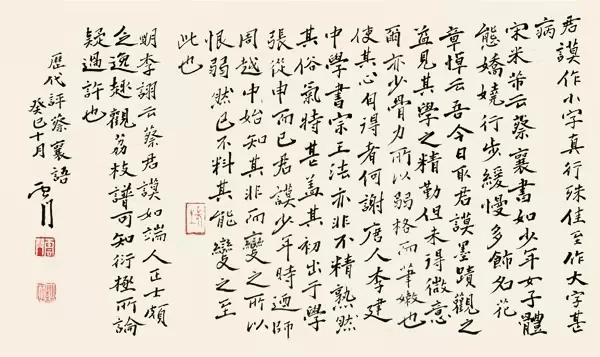 君謨作小字真行殊佳至作大字甚
病
宋米芾云蔡襄書如少年女子體
態嬌嬈行步緩慢多飾名花
章惇云吾今日取君謨墨蹟觀之
益見其學之精勤但未得微意
爾亦少骨力所以弱格而筆嫩也
使其心自得者何謝唐人李建
中學書宗王法亦非不精熟然
其俗氣特甚蓋其初出于學
張從申而已君謨少年時迺師
周越中始知其非而變之所以
恨弱然已不料其能變之至
此也
明李詡云蔡君謨如端人正士頗
含逸趣觀荔枝譜可知衍極所論
疑過許也
歷代評蔡襄語
癸巳十月